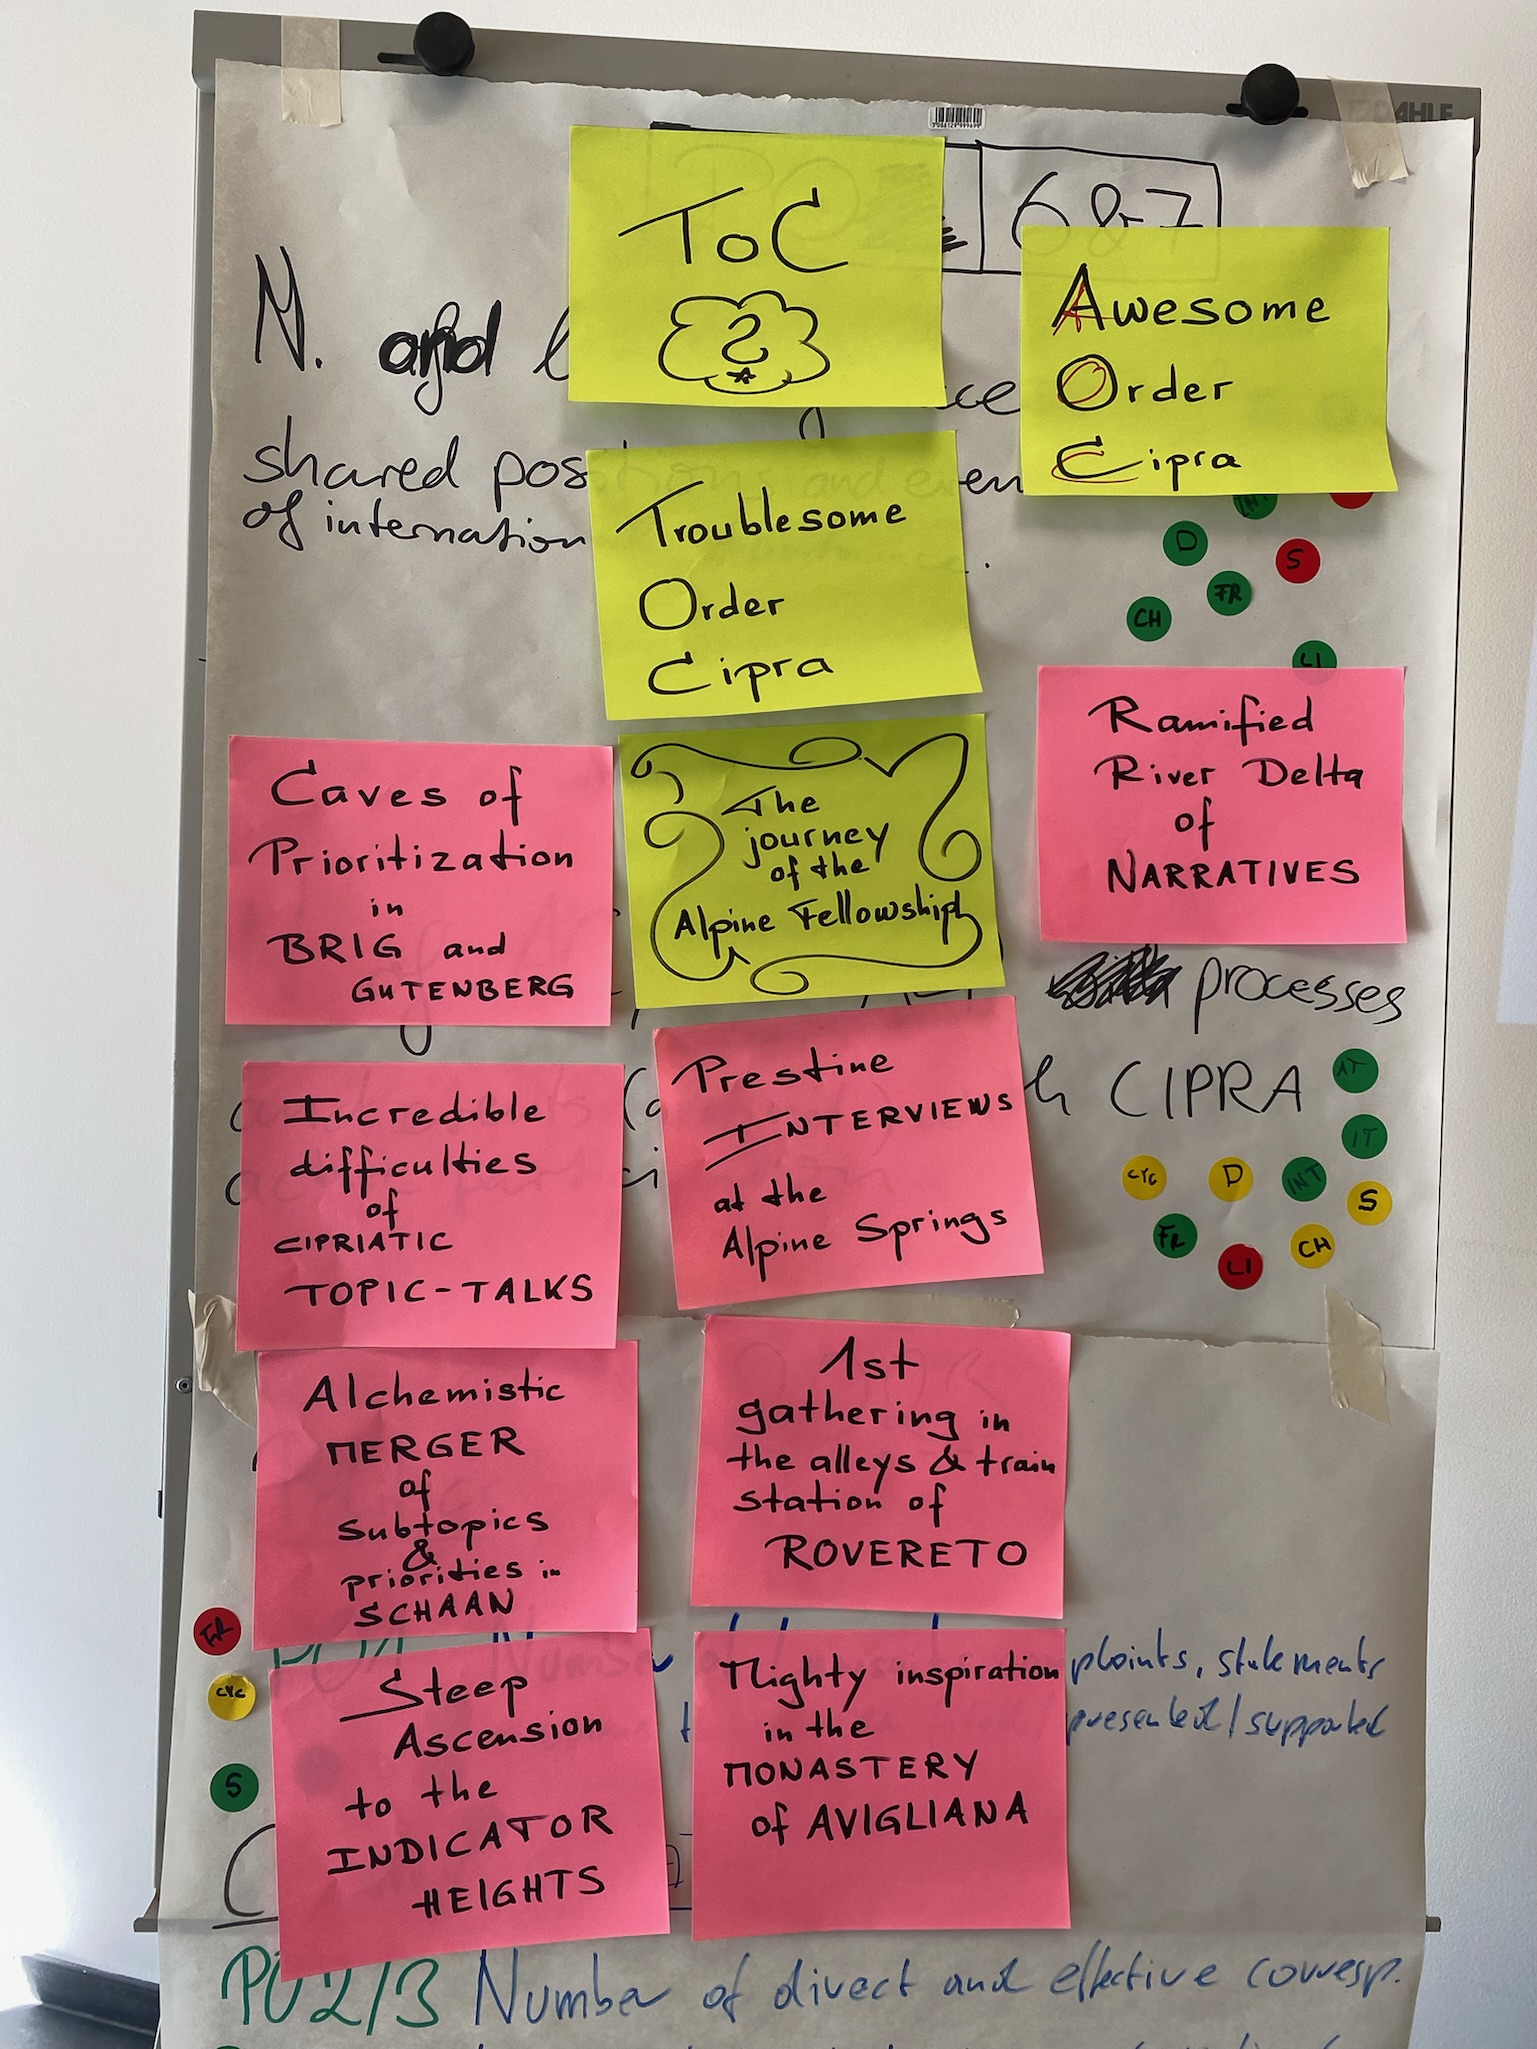 DAHLE
3086129999699
6&7
ToC
?
Awesome
Order
Cipra
N. and
shared pos
even
of internation
Troublesome
Order
Cipra
D
S
FR
CH
LI
Caves of
Prioritization
in
BRIG and
GUTENBERG
The
journey
of the
Alpine Fellowship
Ramified
River Delta
of
NARRATIVES
processes
CIPRA
AT
IT
CYC
D
INT
S
FR
CH
LI
Incredible
difficulties
of
CIPRIATIC
TOPIC-TALKS
Prestine
INTERVIEWS
at the
Alpine Springs
Alchemistic
MERGER
of
subtopics
&
priorities in
SCHAAN
1st
gathering in
the alleys & train
station of
ROVERETO
FR
CYC
S
Steep
Ascension
to the
INDICATOR
HEIGHTS
Mighty inspiration
in the
MONASTERY
of AVIGLIANA
plaints, statements
presented/supported
PO2/3 Number of direct and effective corresp.